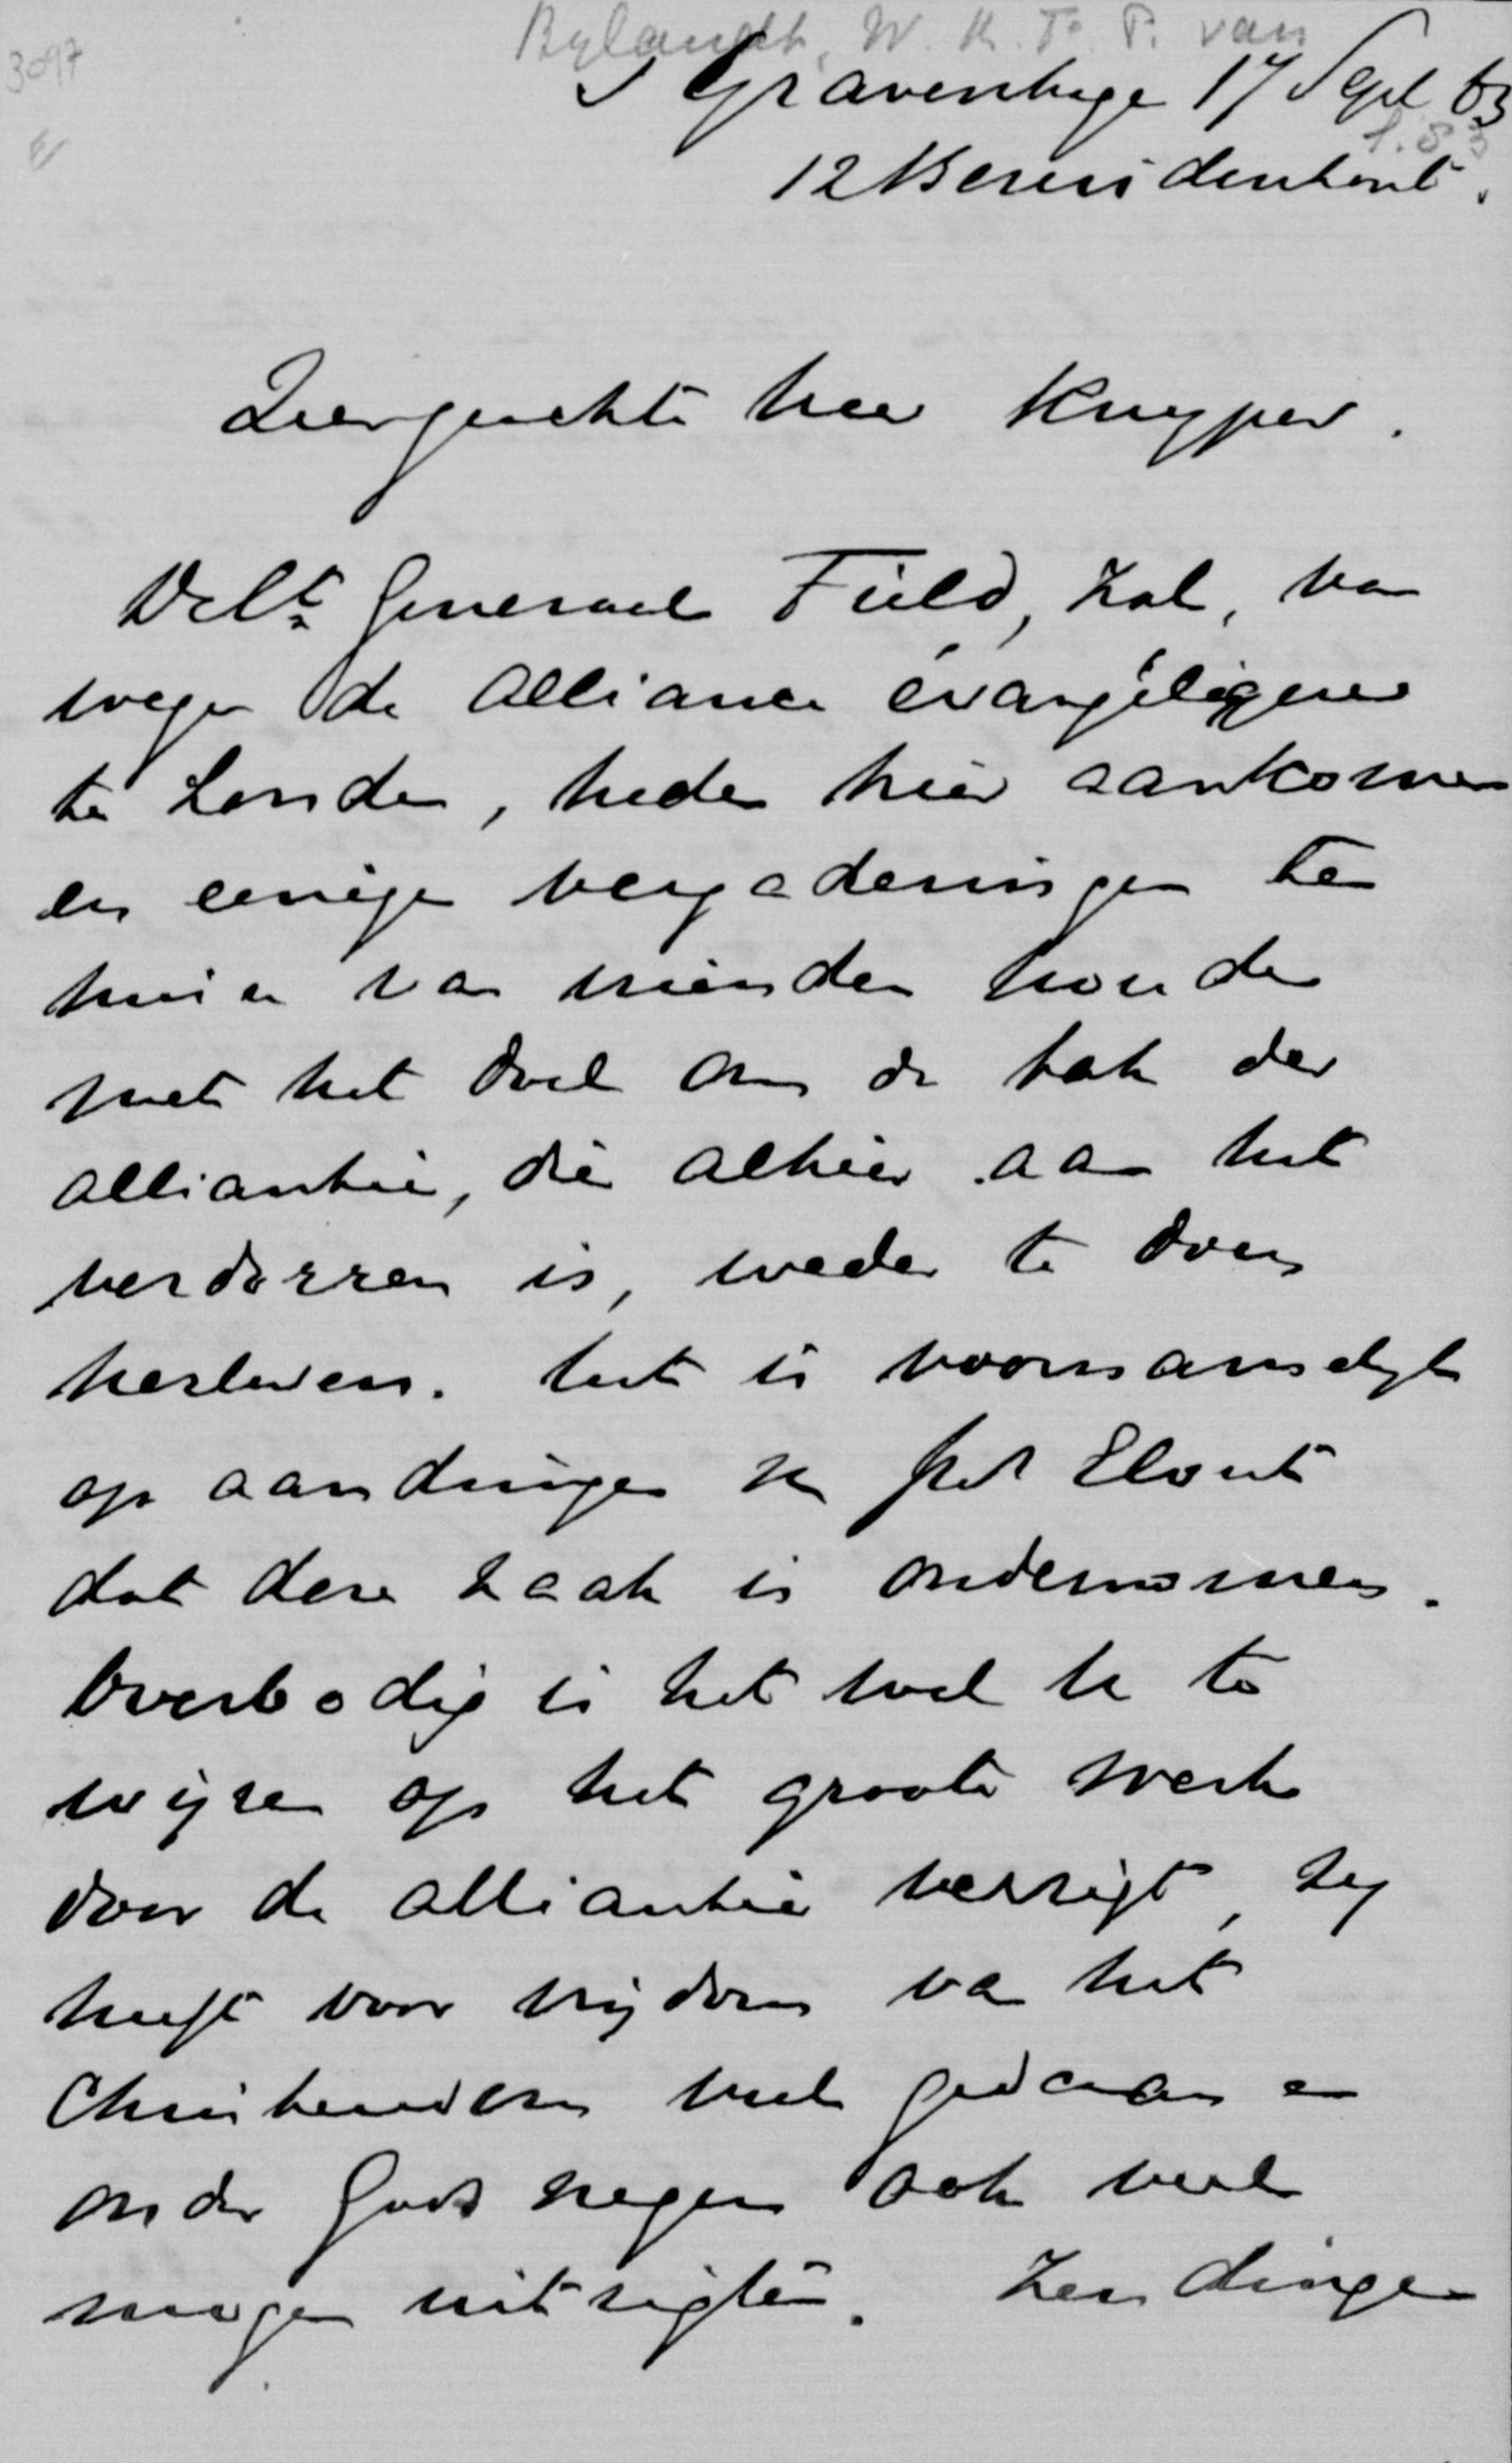 3097
Bylandt, W. K. F. P. van
's Gravenhage 17 Sept 83
1.83
12 Bezuidenhout.
Zeergeachte heer Kuyper.
generaal Field, zal, van
wege de Alliance évangéliques
te Londen, heden hier aankomen
en eenige vergaderingen ten
huize van vrienden houden
met het doel om de tak der
alliantie, die alhier aan het
verdorren is, weder te doen
herleven. het is voornamelyk
op aandringen van Elout
dat deze zaak is ondernomen.
Overbodig is het wel U te
wijzen op het groote werk
door de alliantie verrigt, zy
heeft voor vrijdom van het
Christendom veel gedaan en
onder Gods zegen ook veel
mogen uitrigten. Zendingen